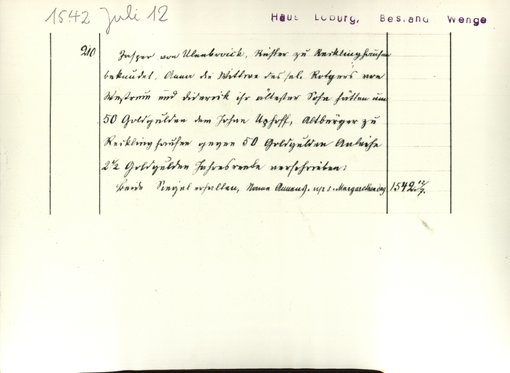 1542 Juli 12
Haus Loburg, Bestand Wenge
210
Jasper von Ulenbroick, Richter zu Recklinghausen
bekundet, Anna die Wittwe des sel. Rotgers von
Westrum und Diderrik ihr ältester Sohn hätten um
50 Goldgulden dem Johan Uphoff, Altbürger zu
Recklinghausen gegen 50 Goldgulden Anleihe
2½ Goldgulden Jahresrente verschrieben:
beide Siegel erhalten, Margarethentag 1542 12/7.